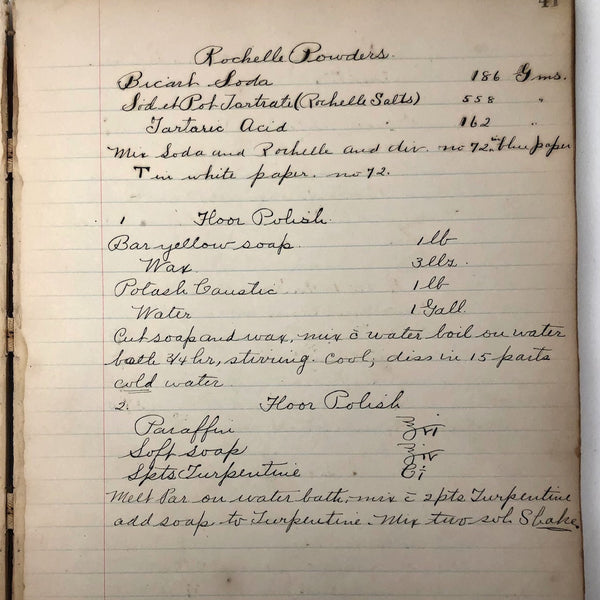 41
Rochelle Powders.
Bicarb Soda 186 Gms.
Sod et Pot Tartrate (Rochelle Salts) 558 "
Tartaric Acid 162 "
Mix Soda and Rochelle and div. no 72 in blue paper
T in white paper. no 72.
1 Floor Polish.
Bar yellow soap. 1 lb
Wax 3 lbs.
Potash Caustic 1 lb
Water 1 Gall.
Cut soap and wax, mix c̄ water boil on water
bath 3/4 hr, stirring. Cool, diss in 15 parts
cold water
2. Floor Polish
Paraffin ℥vi
Soft soap ℥iv
Spts Turpentine Ci
Melt Par on water bath, mix c̄ 2 pts Turpentine
add soap to Turpentine. Mix two sol. Shake.